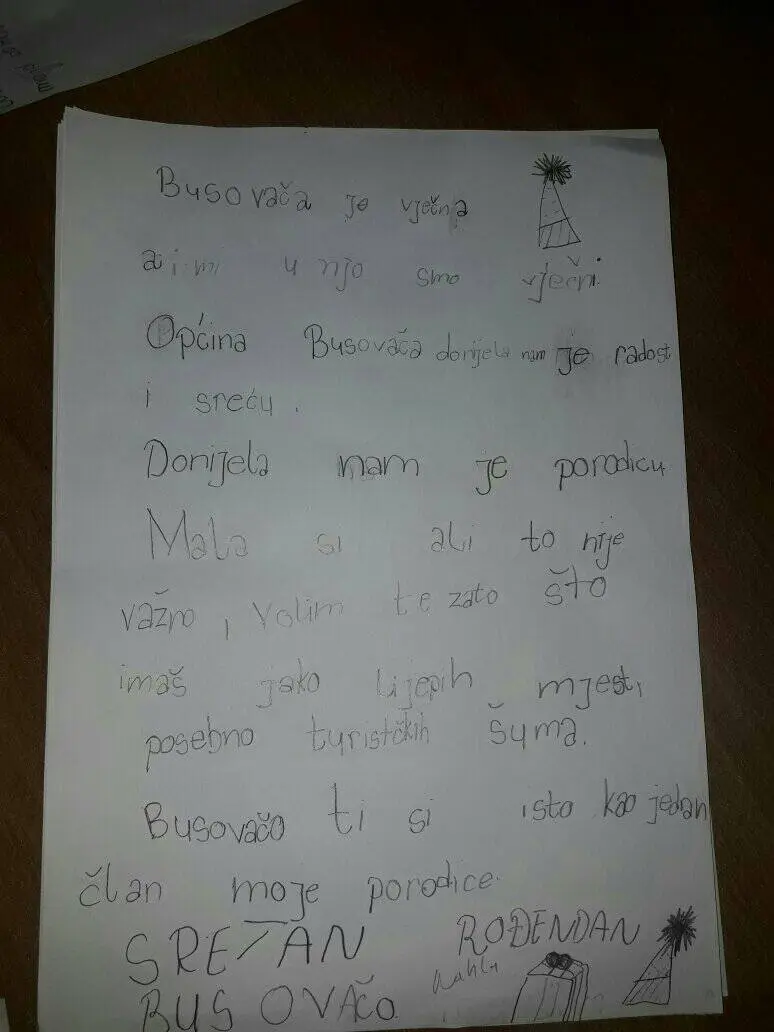 Busovača je vječna
a i mi u njo smo vječni.
Općina Busovača donijela nam je radost
i sreću.
Donijela nam je porodicu
Mala si ali to nije
važno, Volim te zato što
imaš jako lijepih mjesti,
posebno turističkih šuma.
Busovačo ti si isto kao jedan
član moje porodice.
SRETAN ROĐENDAN
BUSOVAČO